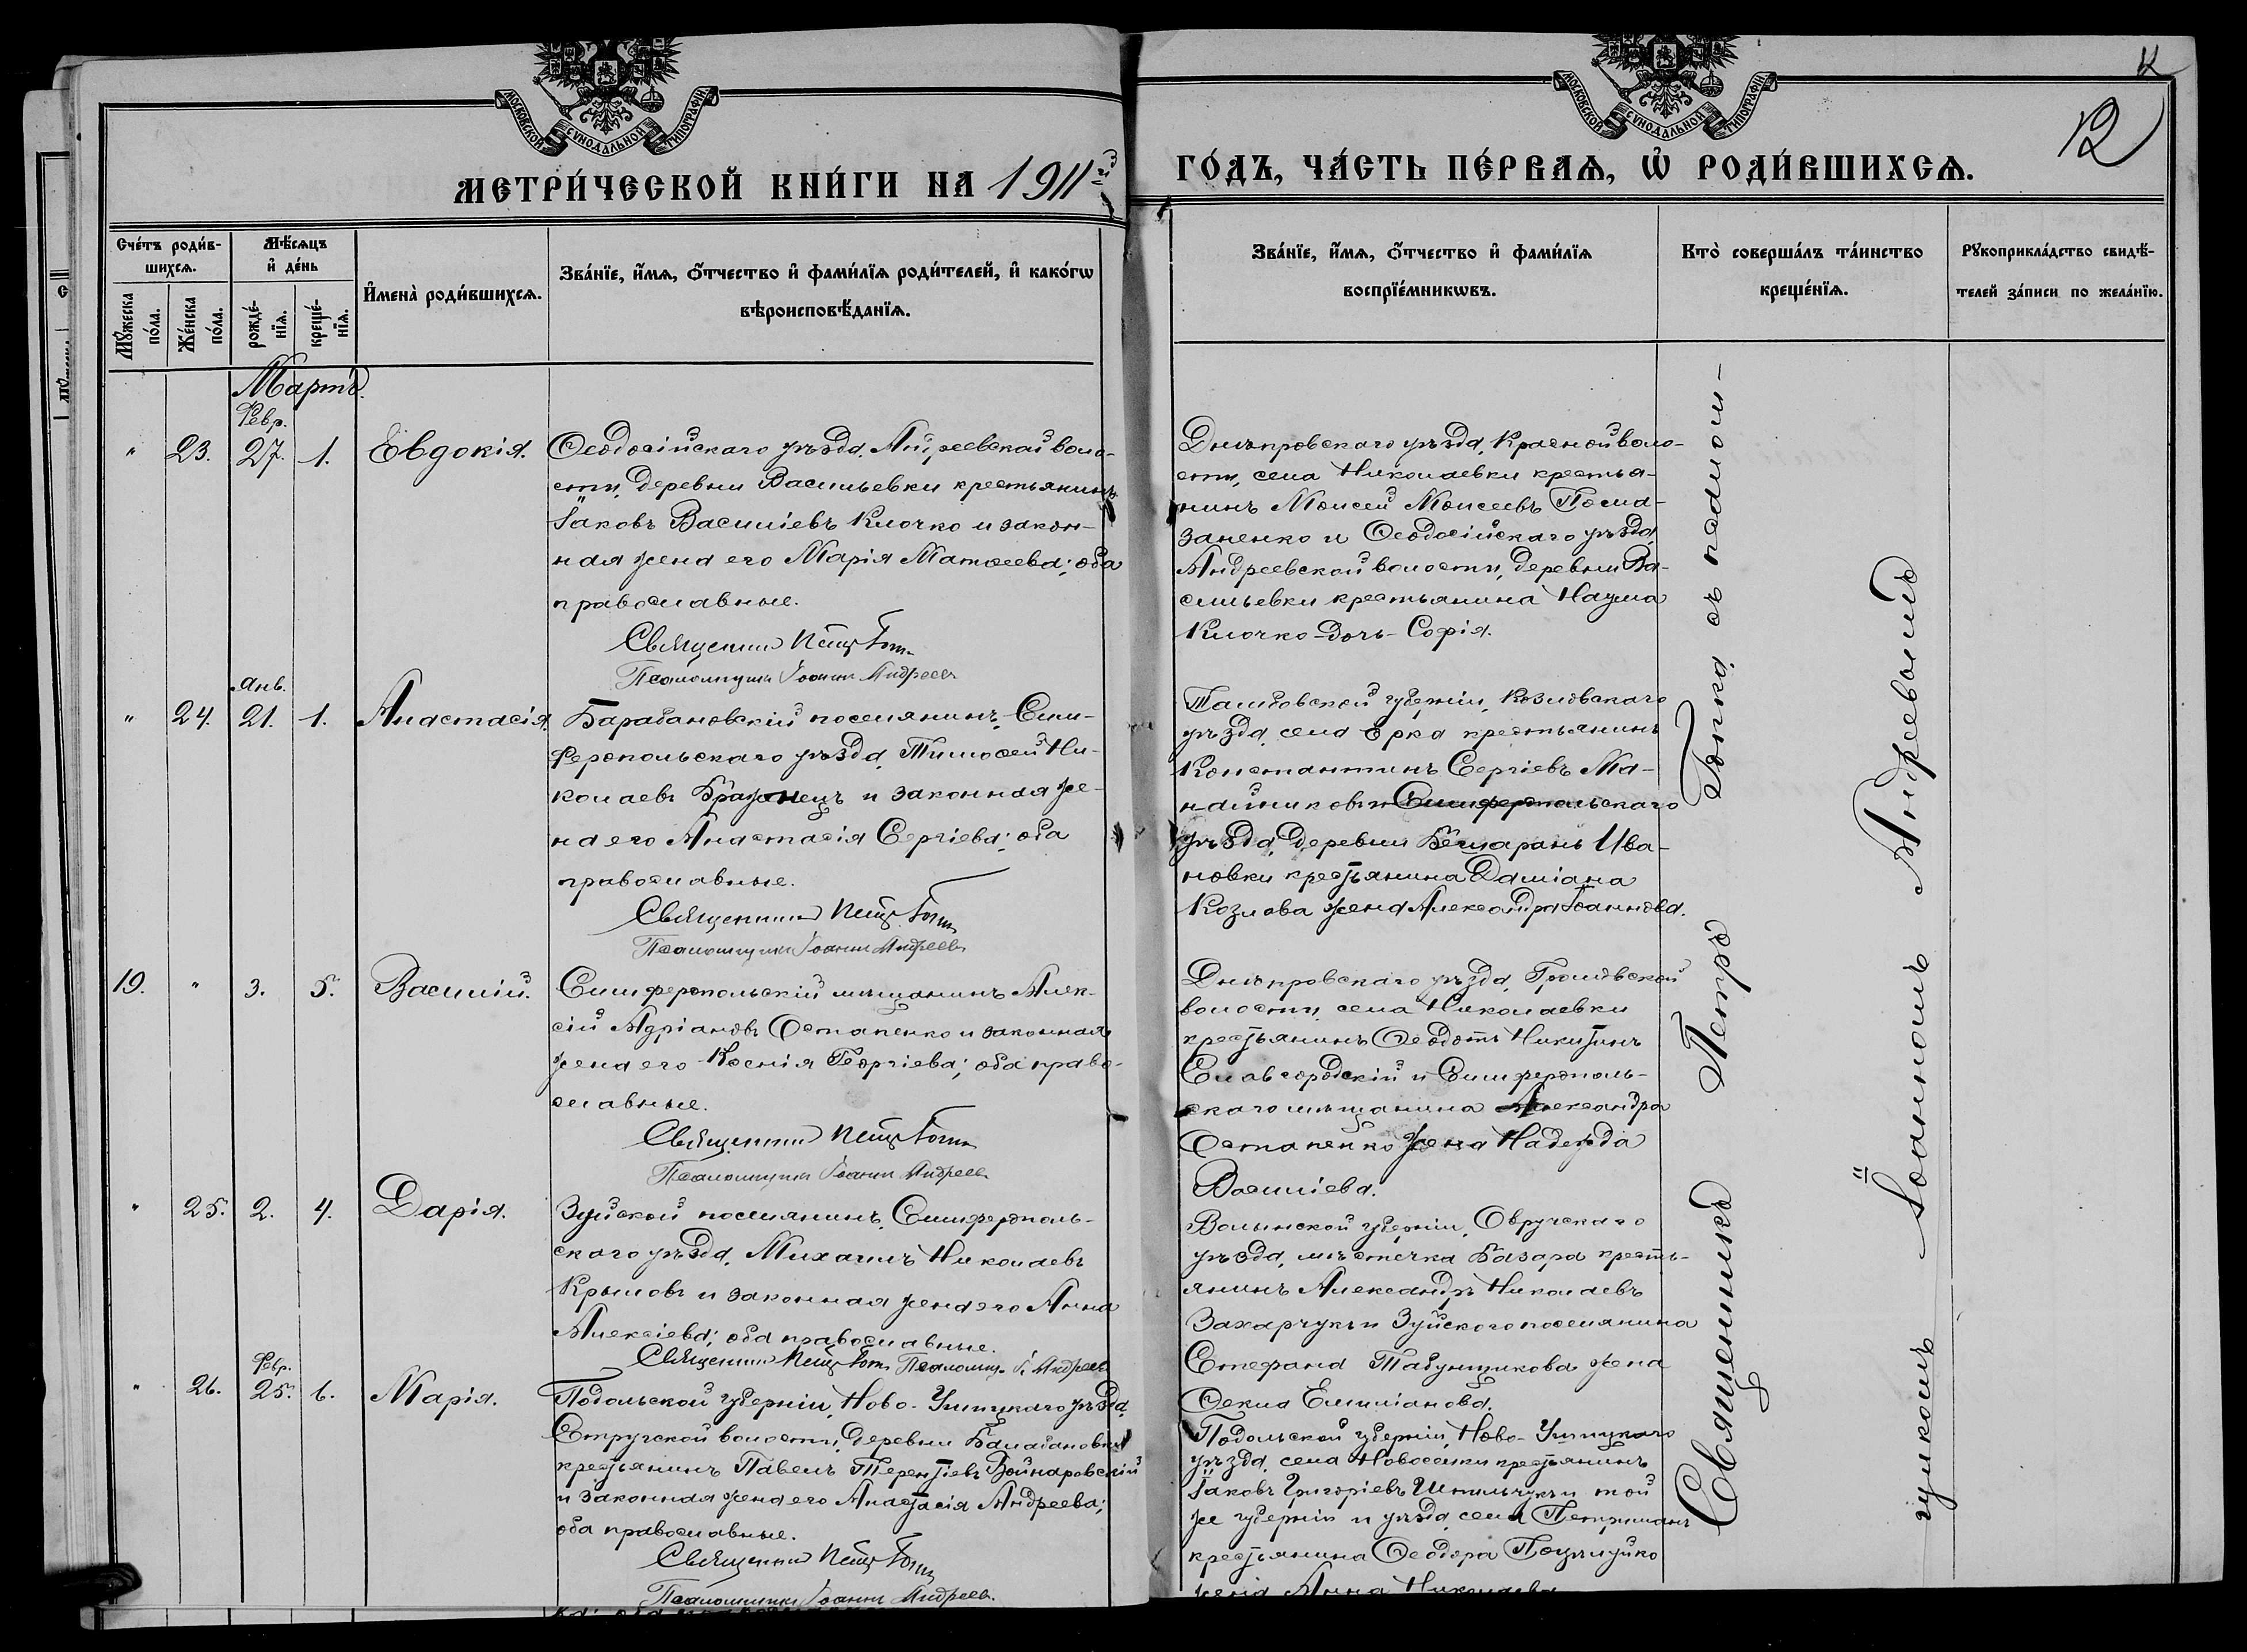 МОСКОВСКОЙ СУНОДАЛЬНОЙ ТИПОГРАФІИ
МЕТРИ́ЧЕСКОЙ КНИ́ГИ НА 1911й
Сче́тъ роди́в-
шихсѧ.
Мꙋ́жеска
по́ла.
Же́нска
по́ла.
Мѣ́сѧцъ
и҆ де́нь
рожде́-
нїѧ.
креще́-
нїѧ.
И҆мена̀ роди́вшихсѧ.
Зва́нїе, и҆́мѧ, ѻ҆́тчество и҆ фами́лїѧ роди́телей, и҆ како́гѡ
вѣроисповѣ́данїѧ.
Мартъ.
Февр.
" 23. 27. 1. Евдокія.
Ѳеодосійскаго уѣзда, Андреевской воло-
сти, деревни Васильевки крестьянинъ
Іаковъ Василіевъ Клочко и закон-
ная жена его Марія Матѳеева; оба
православные.
Священникъ Петръ
Псаломщикъ Іоаннъ Андреевъ
Янв.
" 24. 21. 1. Анастасія.
Барабановскій поселянинъ, Сим-
феропольскаго уѣзда, Тимоѳей Ни-
колаевъ Браженецъ и законная же-
на его Анастасія Сергіева; оба
православные.
Священникъ Петръ
Псаломщикъ Іоаннъ Андреевъ
19. " 3. 5. Василій.
Симферопольскій мѣщанинъ Алек-
сій Адріановъ Остапенко и законная
жена его Ксенія Георгіева; оба право-
славные.
Священникъ Петръ
Псаломщикъ Іоаннъ Андреевъ
" 25. 2. 4. Дарія.
Зуйской поселянинъ, Симферополь-
скаго уѣзда, Михаилъ Николаевъ
Крыловъ и законная жена его Анна
Алексіева; оба православные.
Священникъ Петръ Псаломщ. І. Андреевъ
Февр.
" 26. 25. 6. Марія.
Подольской губерніи, Ново-Ушицкаго уѣзда,
Стружской волости, деревни Балабановки
крестьянинъ Павелъ Терентіевъ Войнаровскій
и законная жена его Анастасія Андреева;
оба православные.
Священникъ Петръ
Псаломщикъ Іоаннъ Андреевъ.
МОСКОВСКОЙ СУНОДАЛЬНОЙ ТИПОГРАФІИ
12
ГО́ДЪ, ЧА́СТЬ ПЕ́РВАѦ, Ѡ҆ РОДИ́ВШИХСѦ.
Зва́нїе, и҆́мѧ, ѻ҆́тчество и҆ фами́лїѧ
воспрїе́мникѡвъ.
Кто̀ соверша́лъ та́инство
креще́нїѧ.
Рꙋкоприкла́дство свидѣ́-
телей за́писи по жела́нїю.
Днѣпровскаго уѣзда, Красной воло-
сти, села Николаевки крестья-
нинъ Моисей Моисеевъ Пома-
заненко и Ѳеодосійскаго уѣзда,
Андреевской волости, деревни Ва-
сильевки крестьянина Наума
Клочко дочь София.
Тамбовской губерніи, Козловскаго
уѣзда, села крестьянинъ
Константинъ Сергіевъ Ма-
и Симферопольскаго
уѣзда, деревни Бешарань Ива-
новки крестьянина Даміана
Козлова жена Александра Іоаннова.
Днѣпровскаго уѣзда, Громовской
волости, села Николаевки
крестьянинъ Ѳеодотъ Никитинъ
Славгородскій и Симферополь-
скаго мѣщанина Александра
Остапенко жена Надежда
Василіева.
Волынской губерніи, Овручскаго
уѣзда, мѣстечка Базара кресть-
янинъ Александръ Николаевъ
Захарчукъ и Зуйскаго поселянина
Стефана Табунщикова жена
Ѳекла Емиліанова.
Подольской губерніи, Ново-Ушицкаго
уѣзда, села Новоселки крестьянинъ
Іаковъ Григоріевъ и той
же губерніи и уѣзда, села
крестьянина Ѳеодора
жена Анна Николаева
Священникъ Петръ съ псаломщ-
щикомъ Іоанномъ Андреевымъ